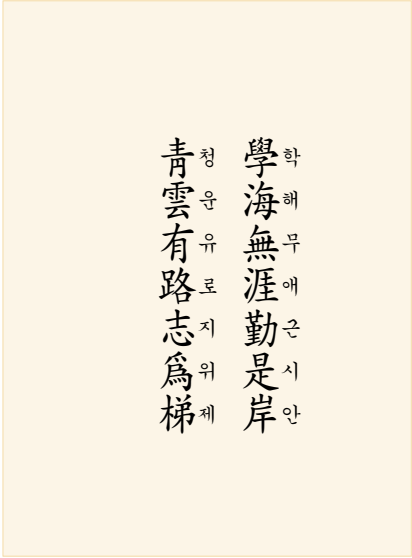 學海無涯勤是岸
학해무애근시안
靑雲有路志爲梯
청운유로지위제